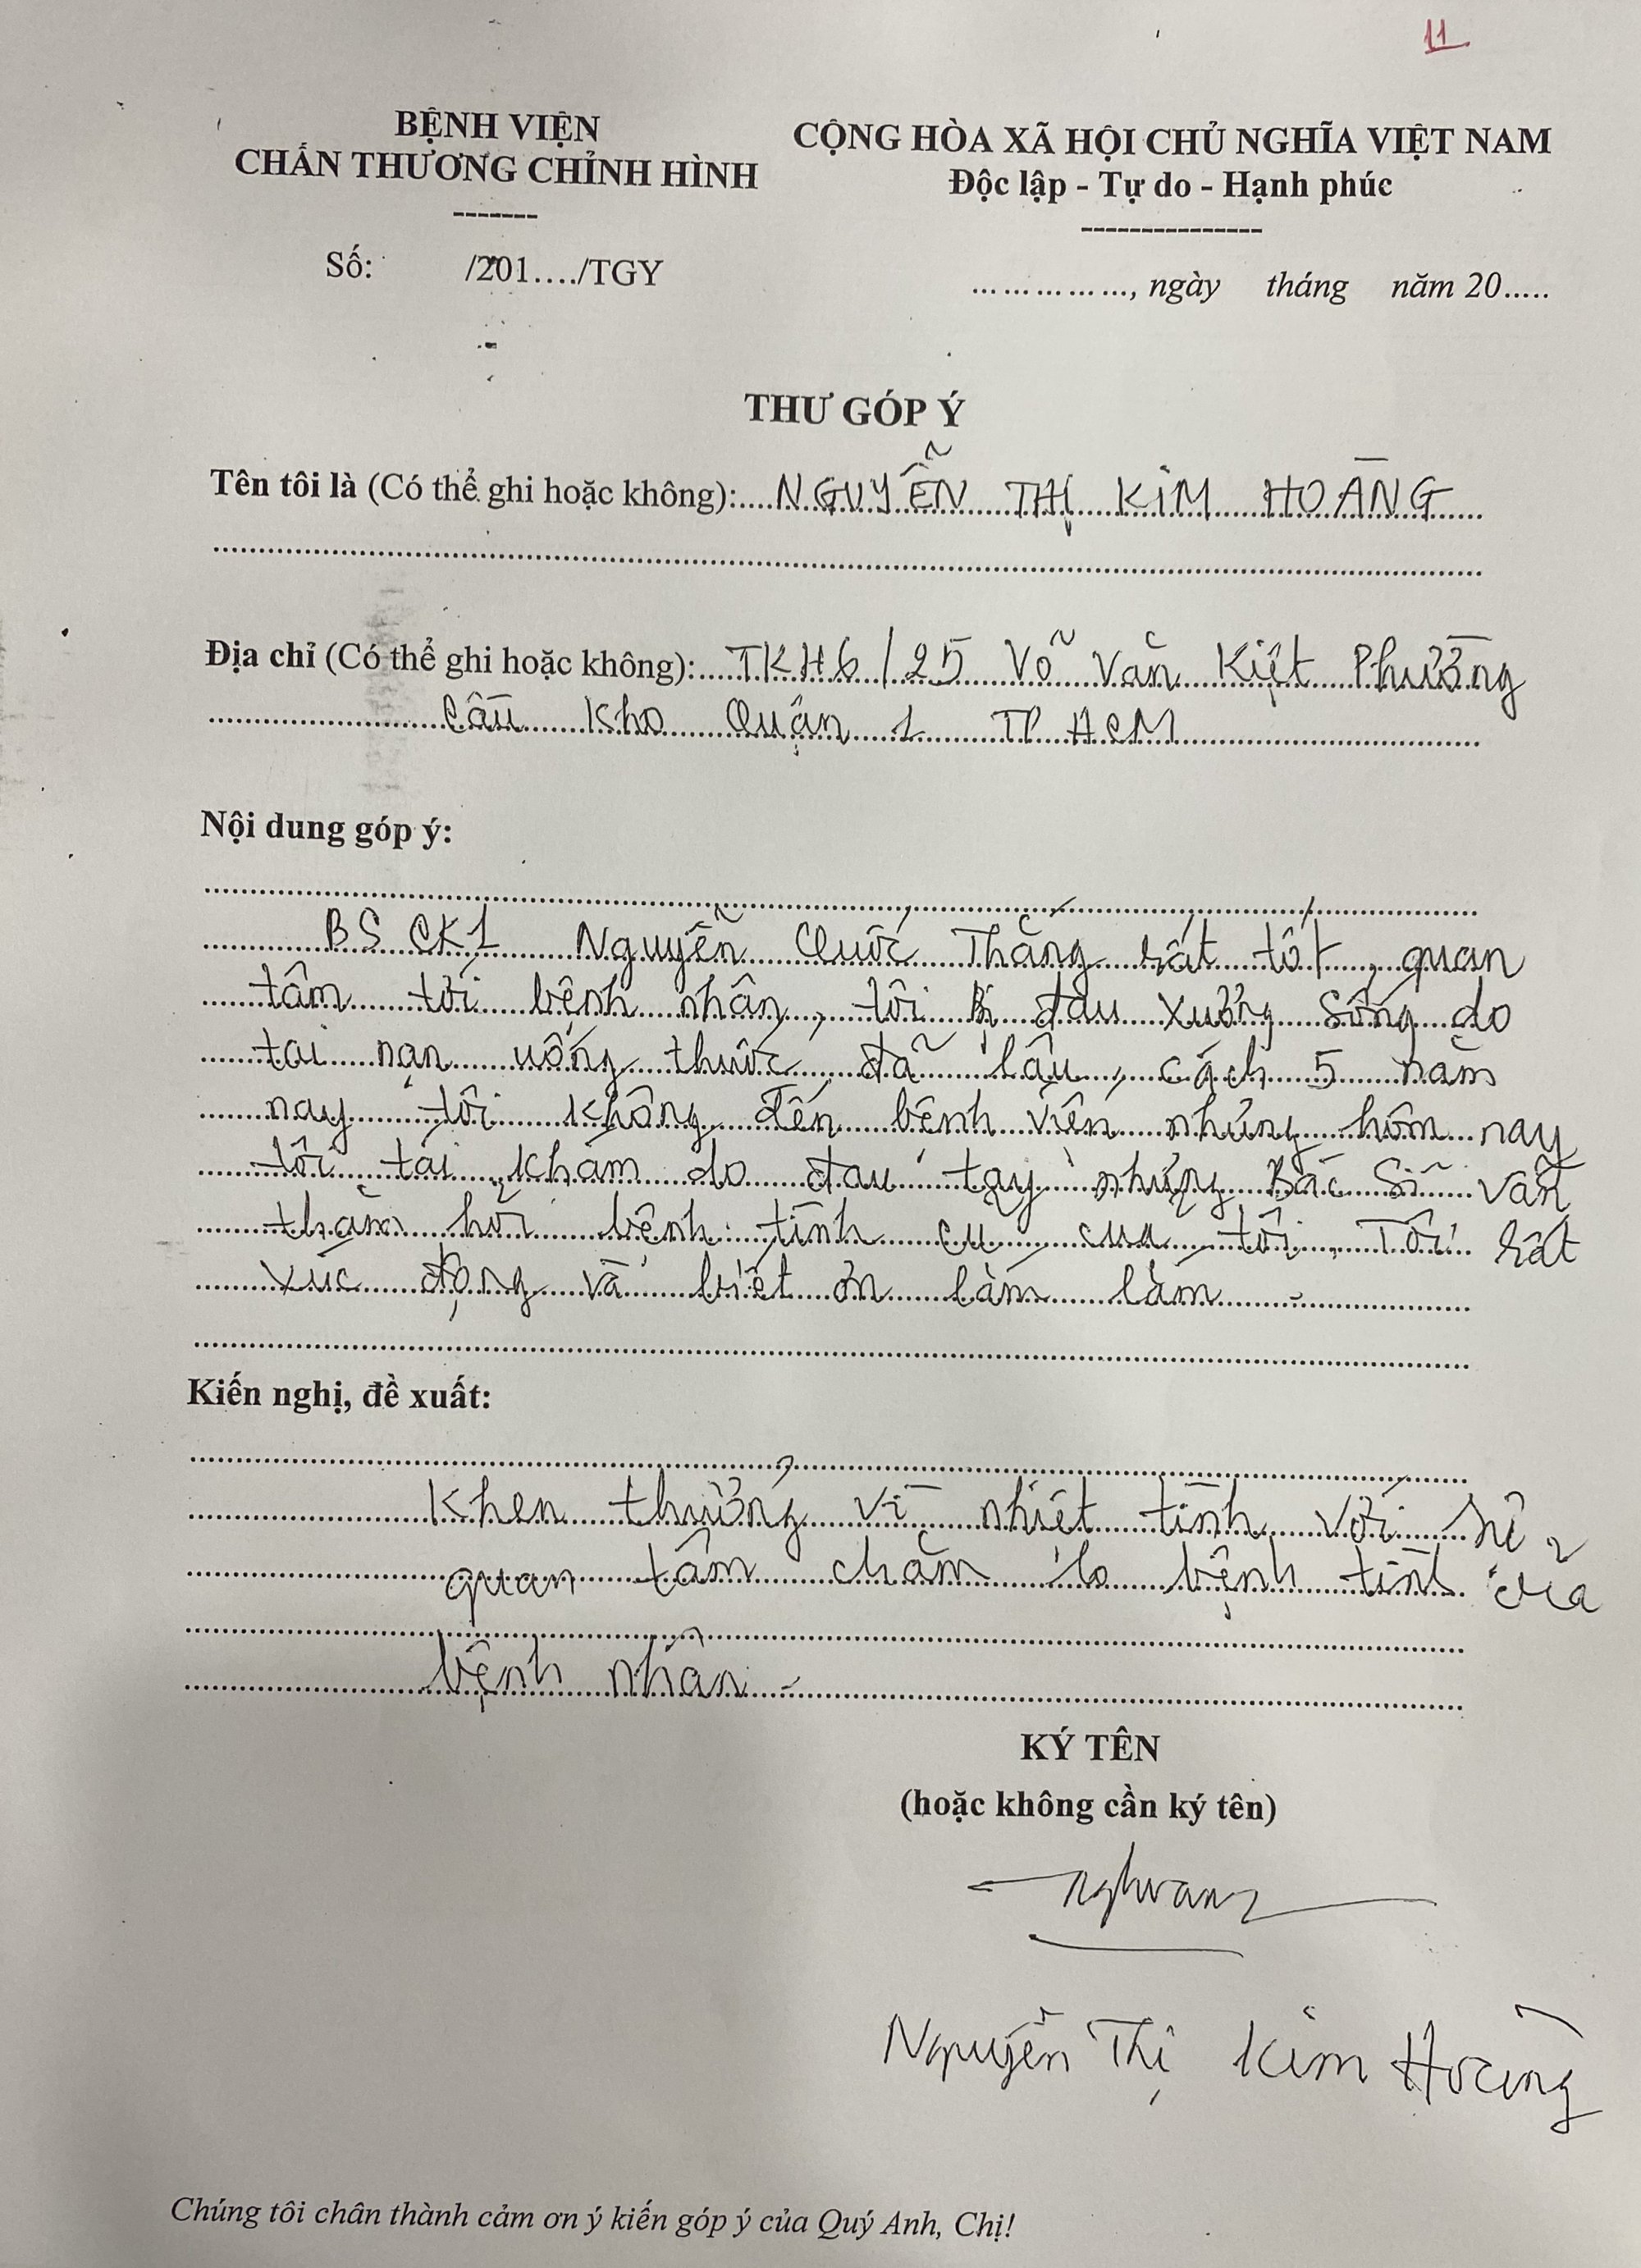 11
BỆNH VIỆN
CHẤN THƯƠNG CHỈNH HÌNH
-------
Số: /201…./TGY
CỘNG HÒA XÃ HỘI CHỦ NGHĨA VIỆT NAM
Độc lập - Tự do - Hạnh phúc
---------------
……………, ngày tháng năm 20…..
THƯ GÓP Ý
Tên tôi là (Có thể ghi hoặc không): NGUYỄN THỊ KIM HOÀNG
Địa chỉ (Có thể ghi hoặc không): TKH6/25 Võ Văn Kiệt Phường
Cầu Kho Quận 1 TP HCM
Nội dung góp ý:
BS CK1 Nguyễn Quốc Thắng rất tốt, quan
tâm tới bệnh nhân, tôi bị đau xương sống do
tai nạn uống thuốc, đã lâu, cách 5 năm
nay tôi không đến bệnh viện nhưng hôm nay
tôi tái khám do đau tay nhưng Bác Sĩ vẫn
thăm hỏi bệnh tình cũ của tôi, Tôi rất
xúc động và biết ơn lắm lắm.
Kiến nghị, đề xuất:
Khen thưởng vì nhiệt tình với sự
quan tâm chăm lo bệnh tình của
bệnh nhân.
KÝ TÊN
(hoặc không cần ký tên)
Nguyễn Thị Kim Hoàng
Chúng tôi chân thành cảm ơn ý kiến góp ý của Quý Anh, Chị!